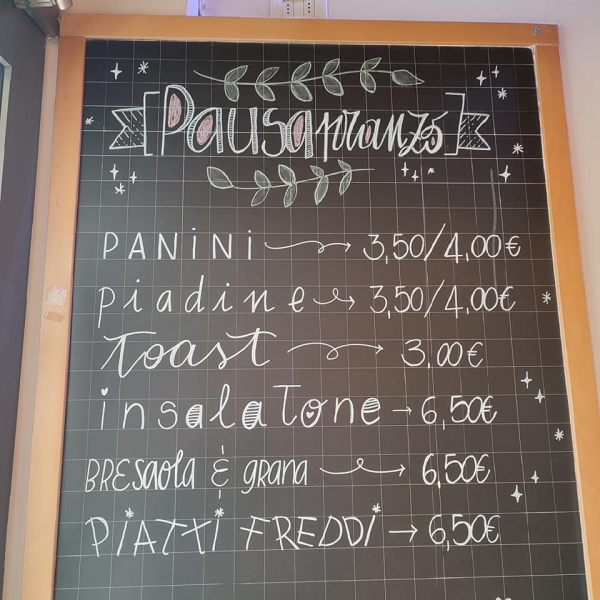 Pausa pranzo
PANiNi → 3,50/4,00€
piadine → 3,50/4,00€
Toast → 3.00€
insalaTone → 6,50€
BRESaola & grana → 6,50€
PiATTi FREDDi → 6,50€